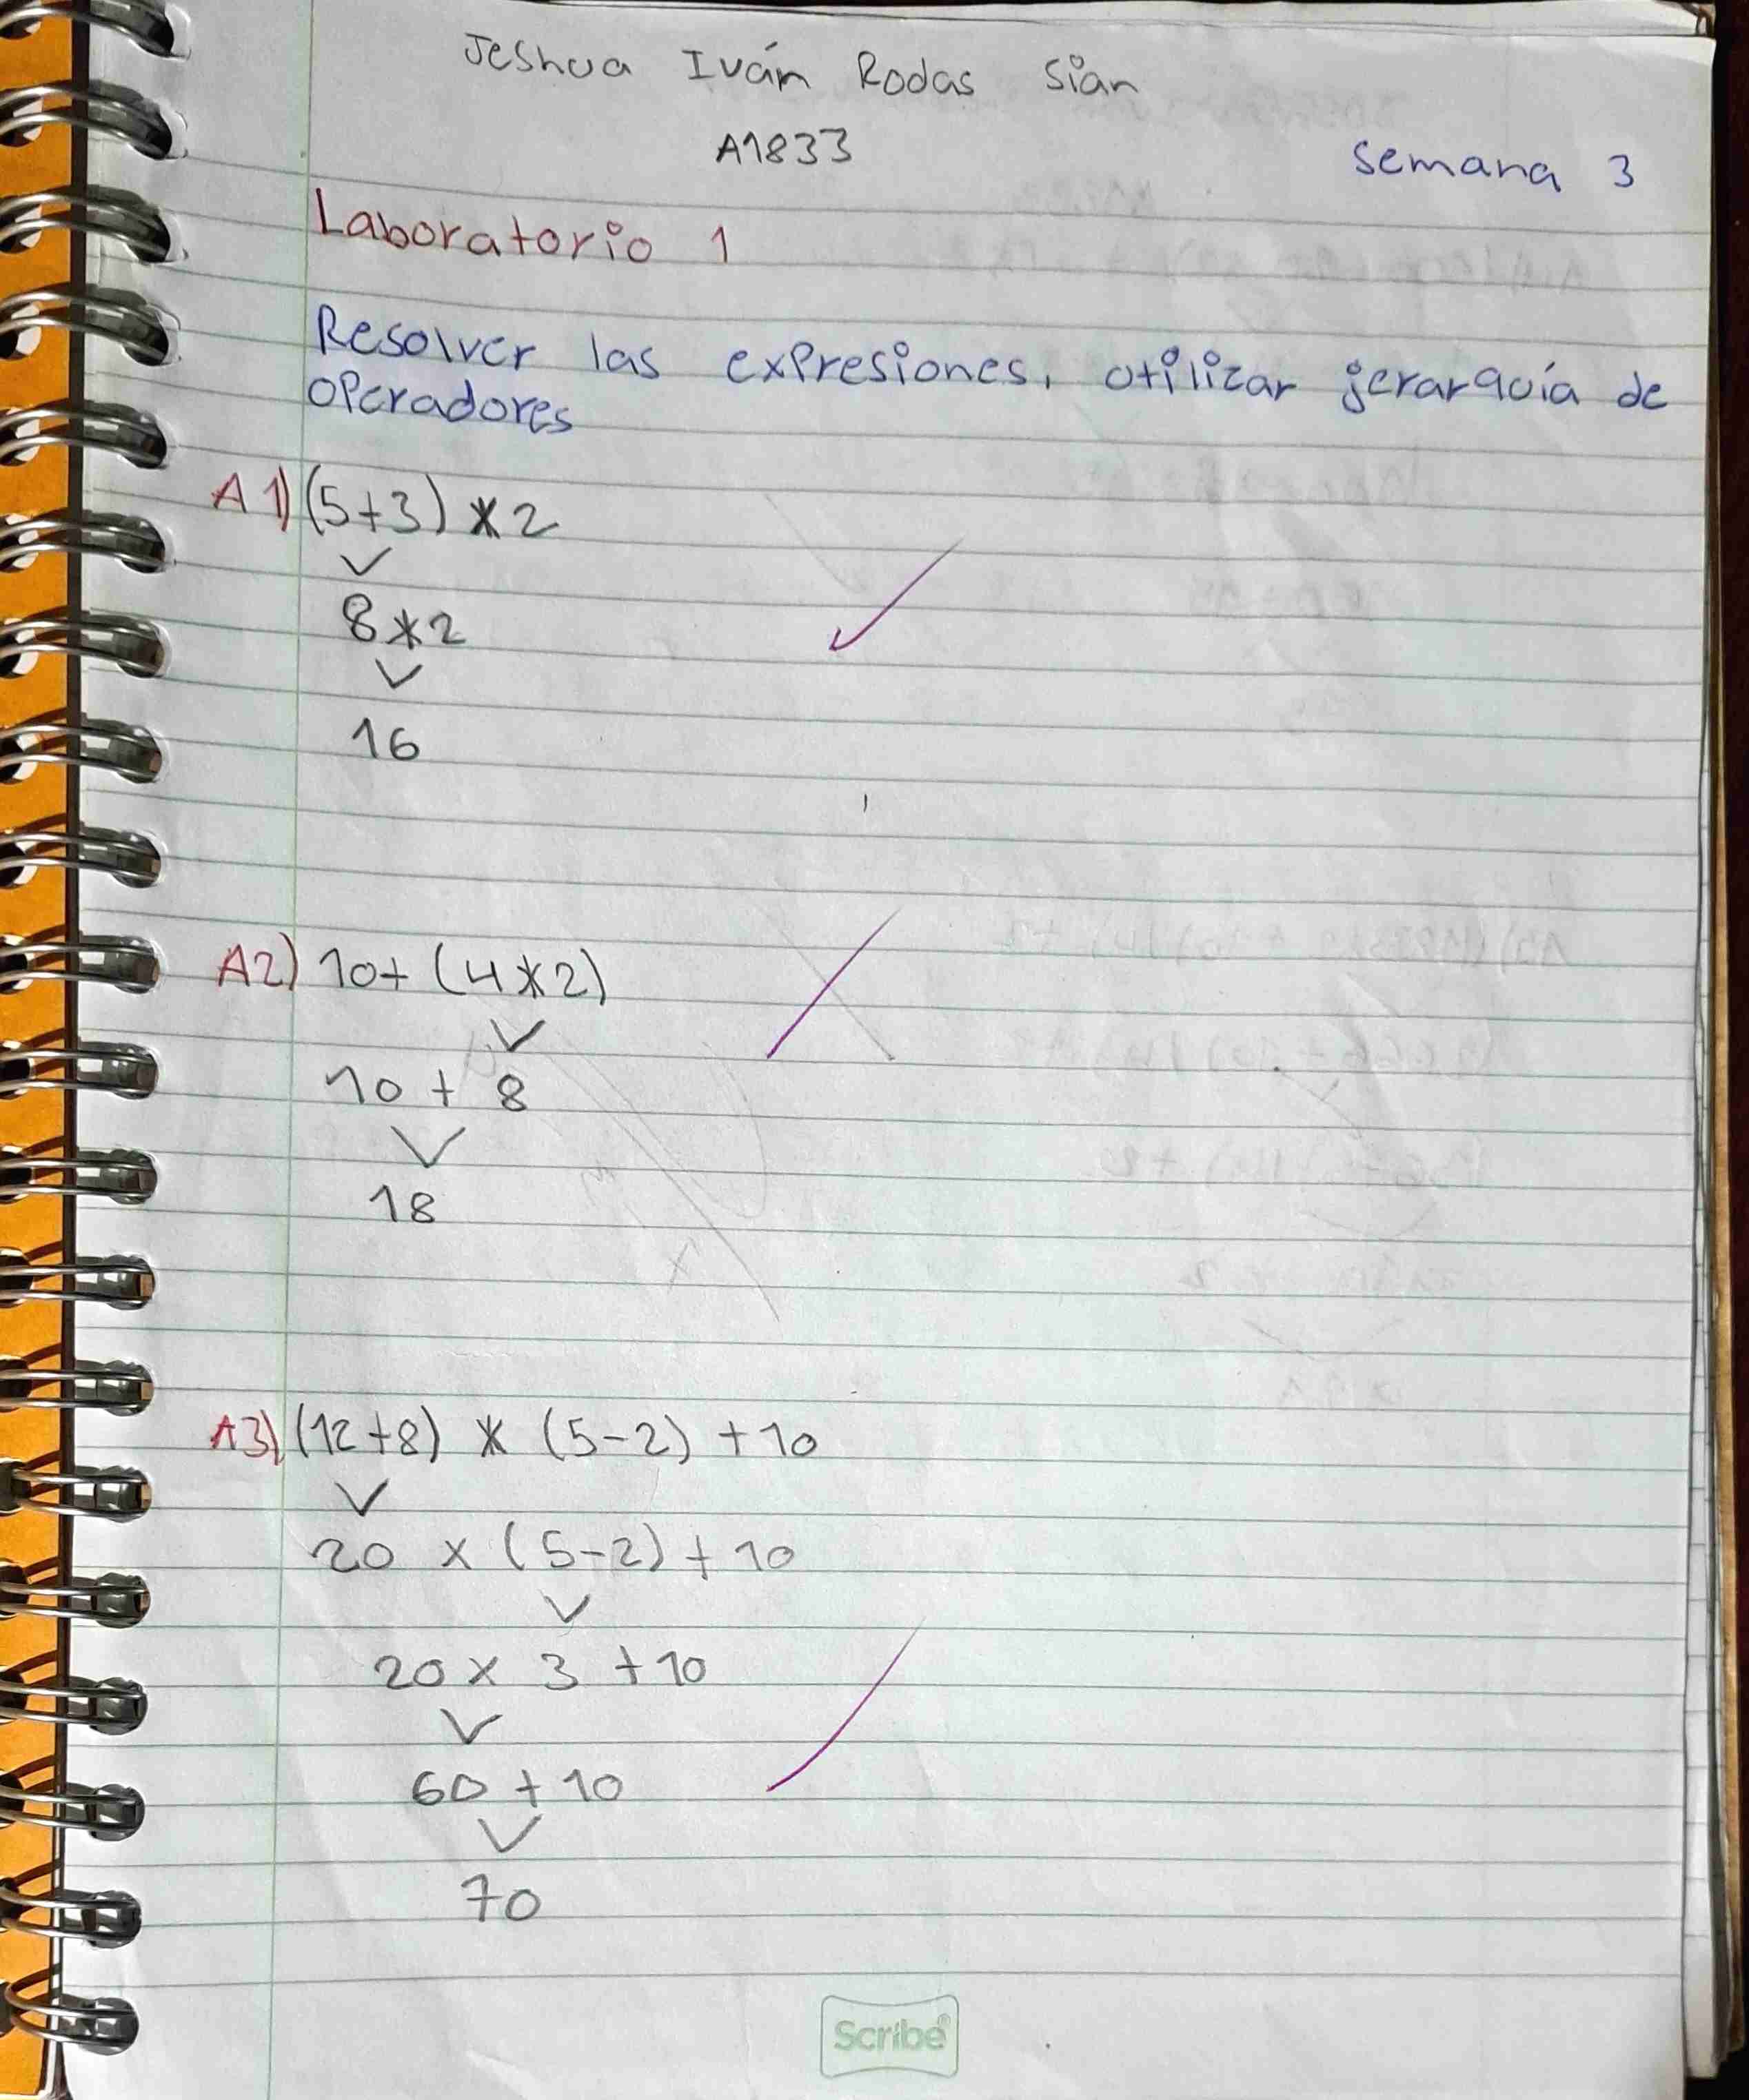 Jeshua Iván Rodas Sian
A1833
Semana 3
Laboratorio 1
Resolver las expresiones, utilizar jerarquía de
operadores
A1) (5+3) * 2
8*2
16
A2) 10+ (4*2)
10 + 8
18
A3) (12+8) * (5-2) +10
20 x (5-2) + 10
20 x 3 + 10
60 + 10
70
Scribe®